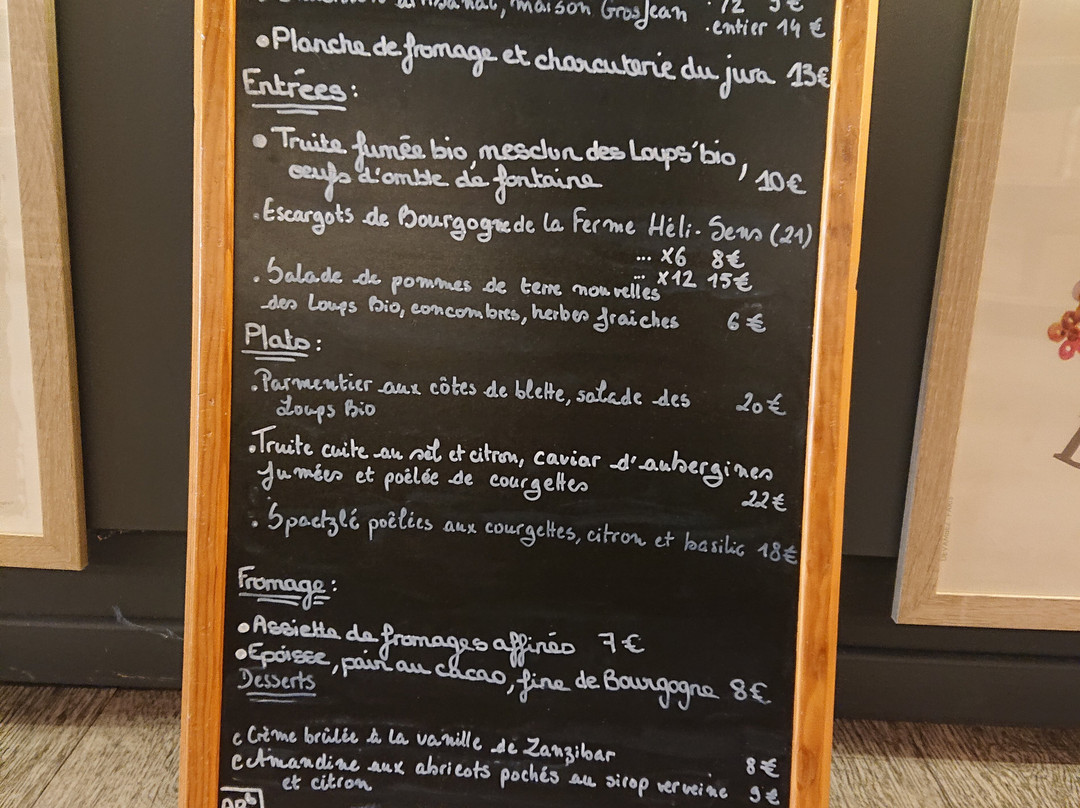 artisanal, maison GrosJean . 1/2 9€
. entier 14 €
• Planche de fromage et charcuterie du jura 13€
Entrées :
• Truite fumée bio, mesclun des Loups' bio,
oeufs d'omble de fontaine 10€
. Escargots de Bourgogne de la Ferme Héli-Sens (21)
... x6 8€
... x12 15€
. Salade de pommes de terre nouvelles
des Loups Bio, concombres, herbes fraîches 6€
Plats :
. Parmentier aux côtes de blette, salade des 20€
Loups Bio
. Truite cuite au sel et citron, caviar d'aubergines
fumées et poêlée de courgettes
22€
. Spaetzlé poêlées aux courgettes, citron et basilic 18€
Fromage :
• Assiette de fromages affinés 7€
• Epoisse, pain au cacao, fine de Bourgogne 8€
Desserts
c Crème brûlée à la vanille de Zanzibar 8€
c Amandine aux abricots pochés au sirop verveine 9€
et citron